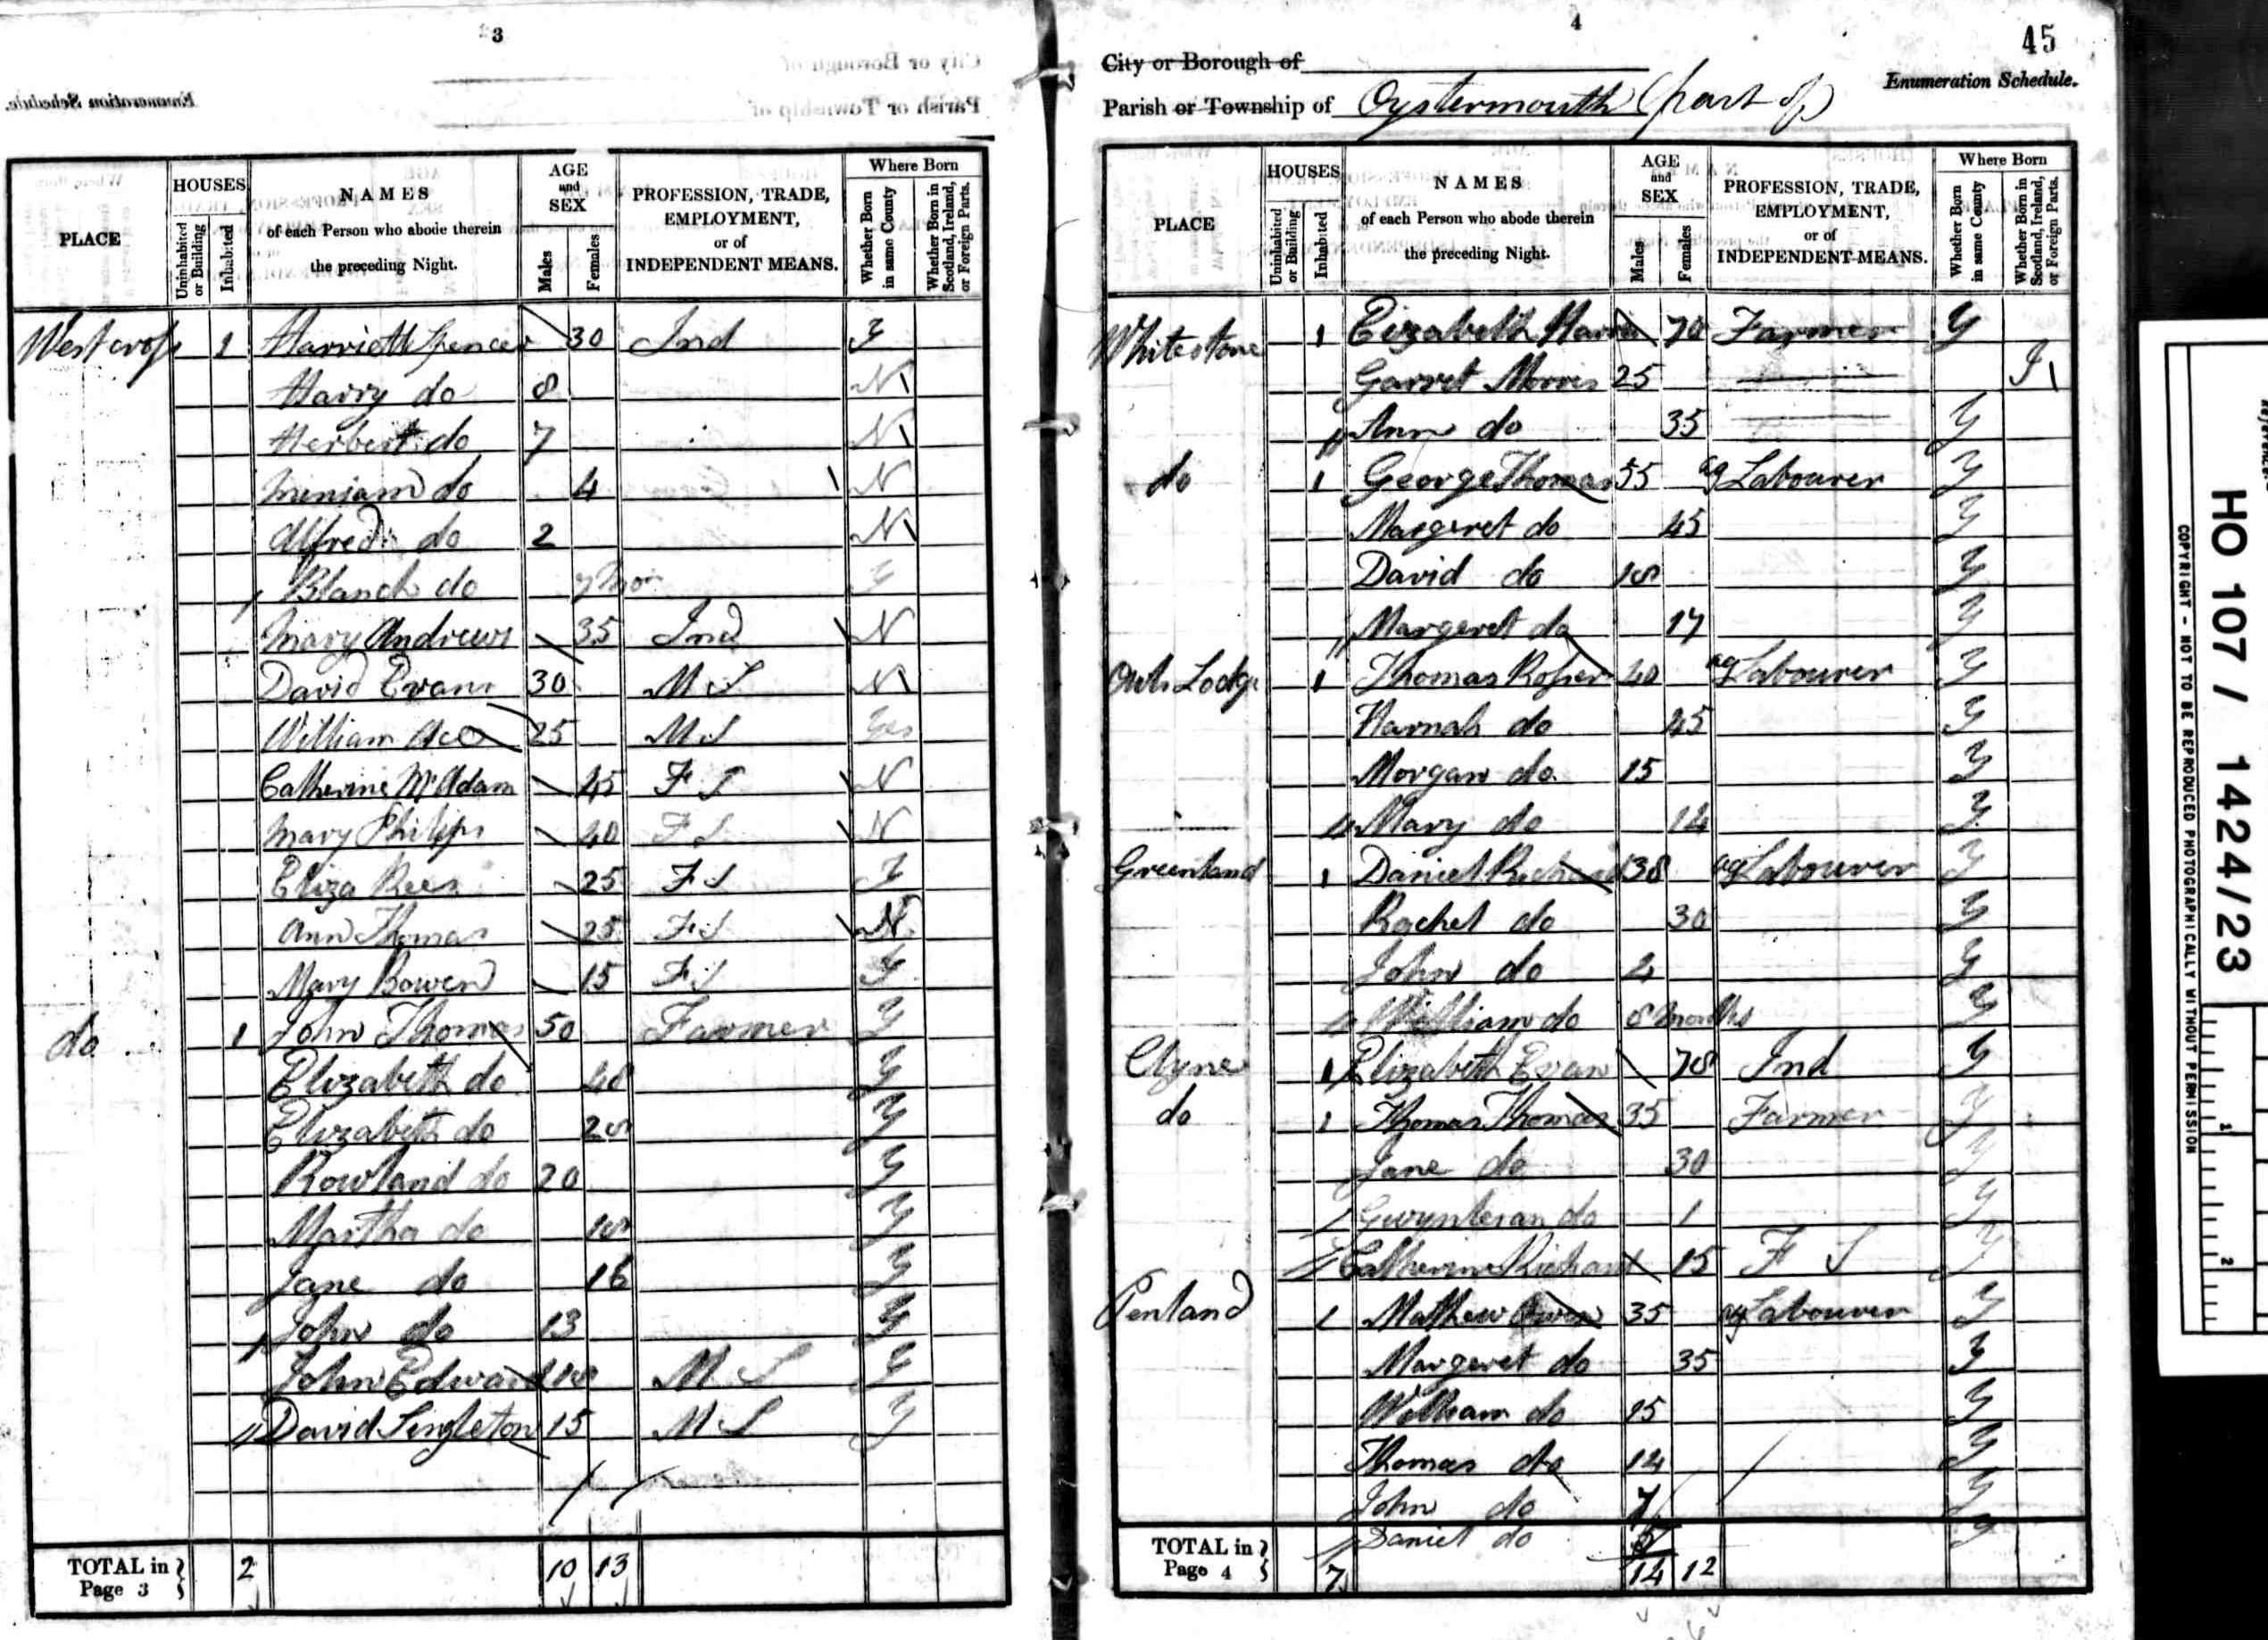 3
PLACE
HOUSES
Uninhabited or Building
Inhabited
NAMES
of each Person who abode therein
the preceding Night.
AGE
and
SEX
Males
Females
PROFESSION, TRADE,
EMPLOYMENT,
or of
INDEPENDENT MEANS.
Where Born
Whether Born in same County
Whether Born in Scotland, Ireland, or Foreign Parts.
Westcross 1 Harriett Spencer 30 Ind Y
Harry do 8 N
Herbert do 7 N
do 4 N
Alfred do 2 N
Blanch do Y
Mary Andrews 35 Ind N
David Evans 30 M S N
William Ace 25 M S Yes
Catherine McAdam 45 F S N
Mary Philips 40 F S N
Eliza Rees 25 F S Y
Ann Thomas 25 F S N
Mary Bowen 15 F S Y
do 1 John Thomas 50 Farmer Y
Elizabeth do 48 Y
Elizabeth do 28 Y
Rowland do 20 Y
Martha do 18 Y
Jane do 16 Y
John do 13 Y
John Edward 18 M S Y
David Singleton 15 M S Y
TOTAL in
Page 3
2 10 13
4
45
City or Borough of
Enumeration Schedule.
Parish or Township of Oystermouth (part of)
PLACE
HOUSES
Uninhabited or Building
Inhabited
NAMES
of each Person who abode therein
the preceding Night.
AGE
and
SEX
Males
Females
PROFESSION, TRADE,
EMPLOYMENT,
or of
INDEPENDENT MEANS.
Where Born
Whether Born in same County
Whether Born in Scotland, Ireland, or Foreign Parts.
Whitestone 1 Elizabeth 70 Farmer Y
Garret Morris 25 I
Ann do 35 Y
do 1 George Thomas 55 ag Labourer Y
Margeret do 45 Y
David do 18 Y
Margeret do 17 Y
Lodge 1 Thomas Rosser 40 ag Labourer Y
Hannah do 45 Y
Morgan do 15 Y
Mary do 14 Y
Greenland 1 Daniel Richard 38 ag Labourer Y
Rachel do 30 Y
John do 2 Y
William do 8 Months Y
Clyne 1 Elizabeth Evan 78 Ind Y
do 1 Thomas Thomas 35 Farmer Y
Jane do 30 Y
do 1 Y
Catherine Richard 15 F S Y
Penland 1 Mathew Owen 35 ag Labourer Y
Margeret do 35 Y
William do 15 Y
Thomas do 14 Y
John do 7 Y
Daniel do Y
TOTAL in
Page 4
7 14 12
HO 107 / 1424/23
COPYRIGHT - NOT TO BE REPRODUCED PHOTOGRAPHICALLY WITHOUT PERMISSION
1
2